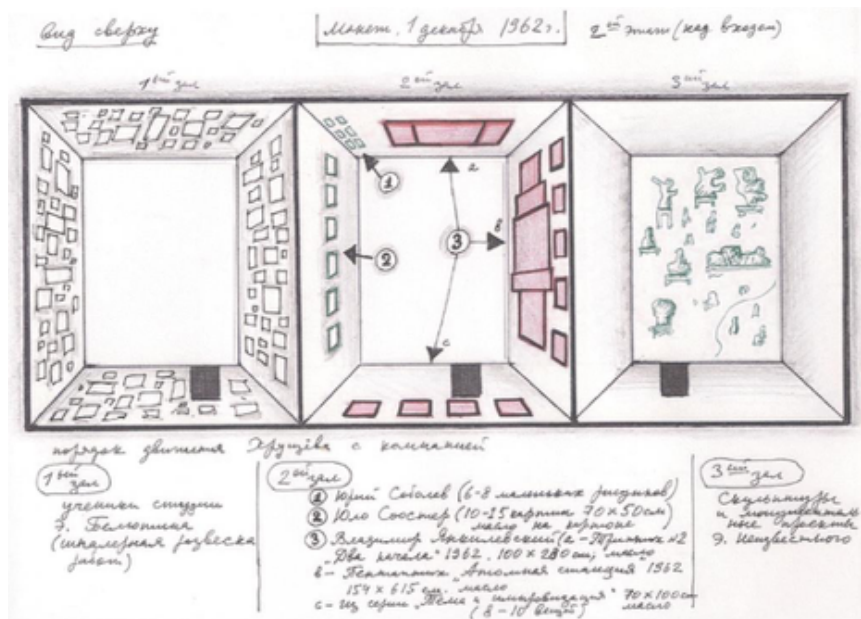 Вид сверху
Макет, 1 декабря 1962 г.
2ой этаж (над входом)
1ый зал
2ой зал
3ий зал
1
2
3
а
в
с
порядок движения Хрущёва с компанией
1ый зал
ученики студии
Э. Белютина
(шпалерная развеска работ)
2ой зал
1 Юрий Соболев (6-8 маленьких рисунков)
2 Юло Соостер (10-15 картин 70х50см)
масло на картоне
3 Владимир Янкилевский (а - Триптих №2
"Два начала" 1962. 100 х 280 см, масло
в - Пентаптих "Атомная станция" 1962
154 х 615 см. масло
с - из серии "Тема и импровизация" 70х100см
(8-10 вещей) масло
3ий зал
Скульптуры
и монументаль-
ные проекты
Э. Неизвестного